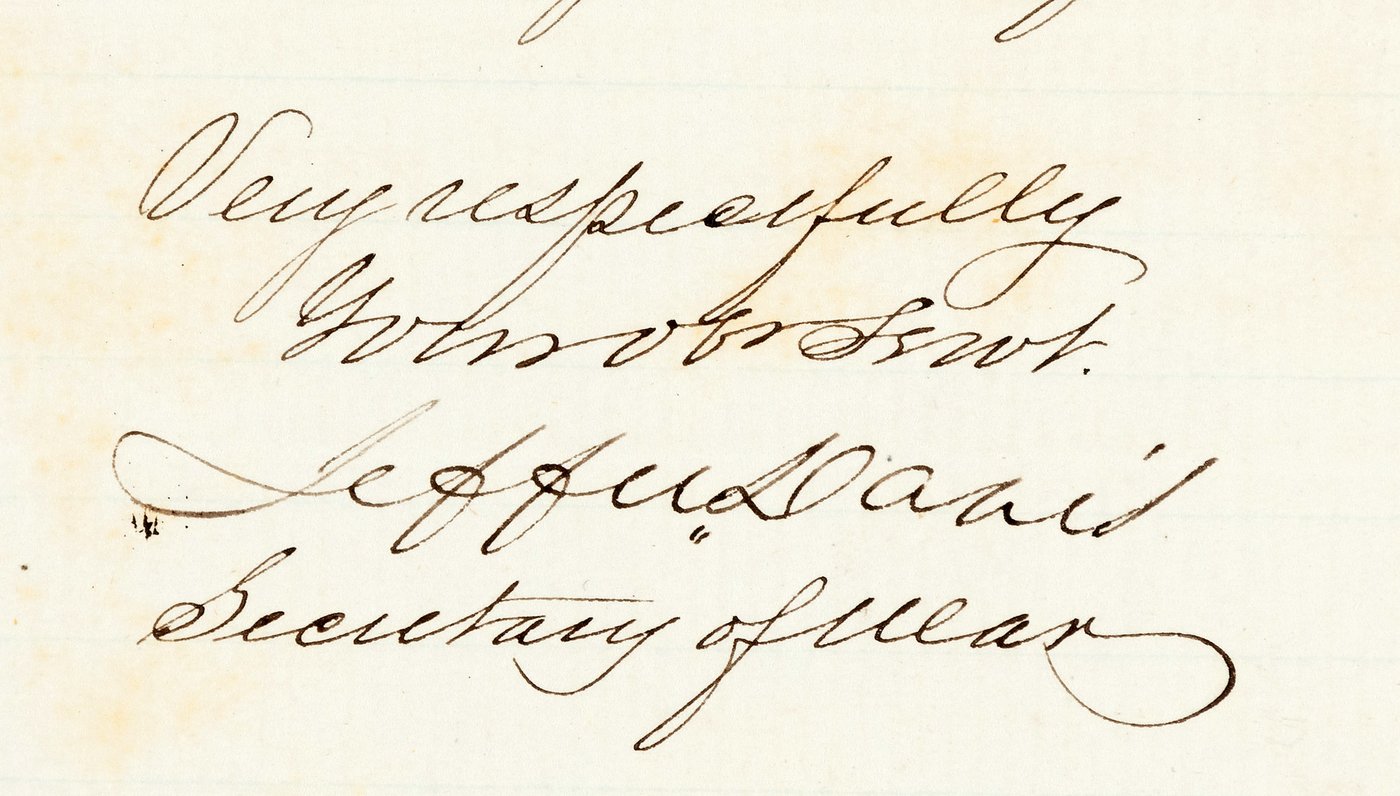 Very respectfully
Your obt Servt.
Jeffn Davis
Secretary of War